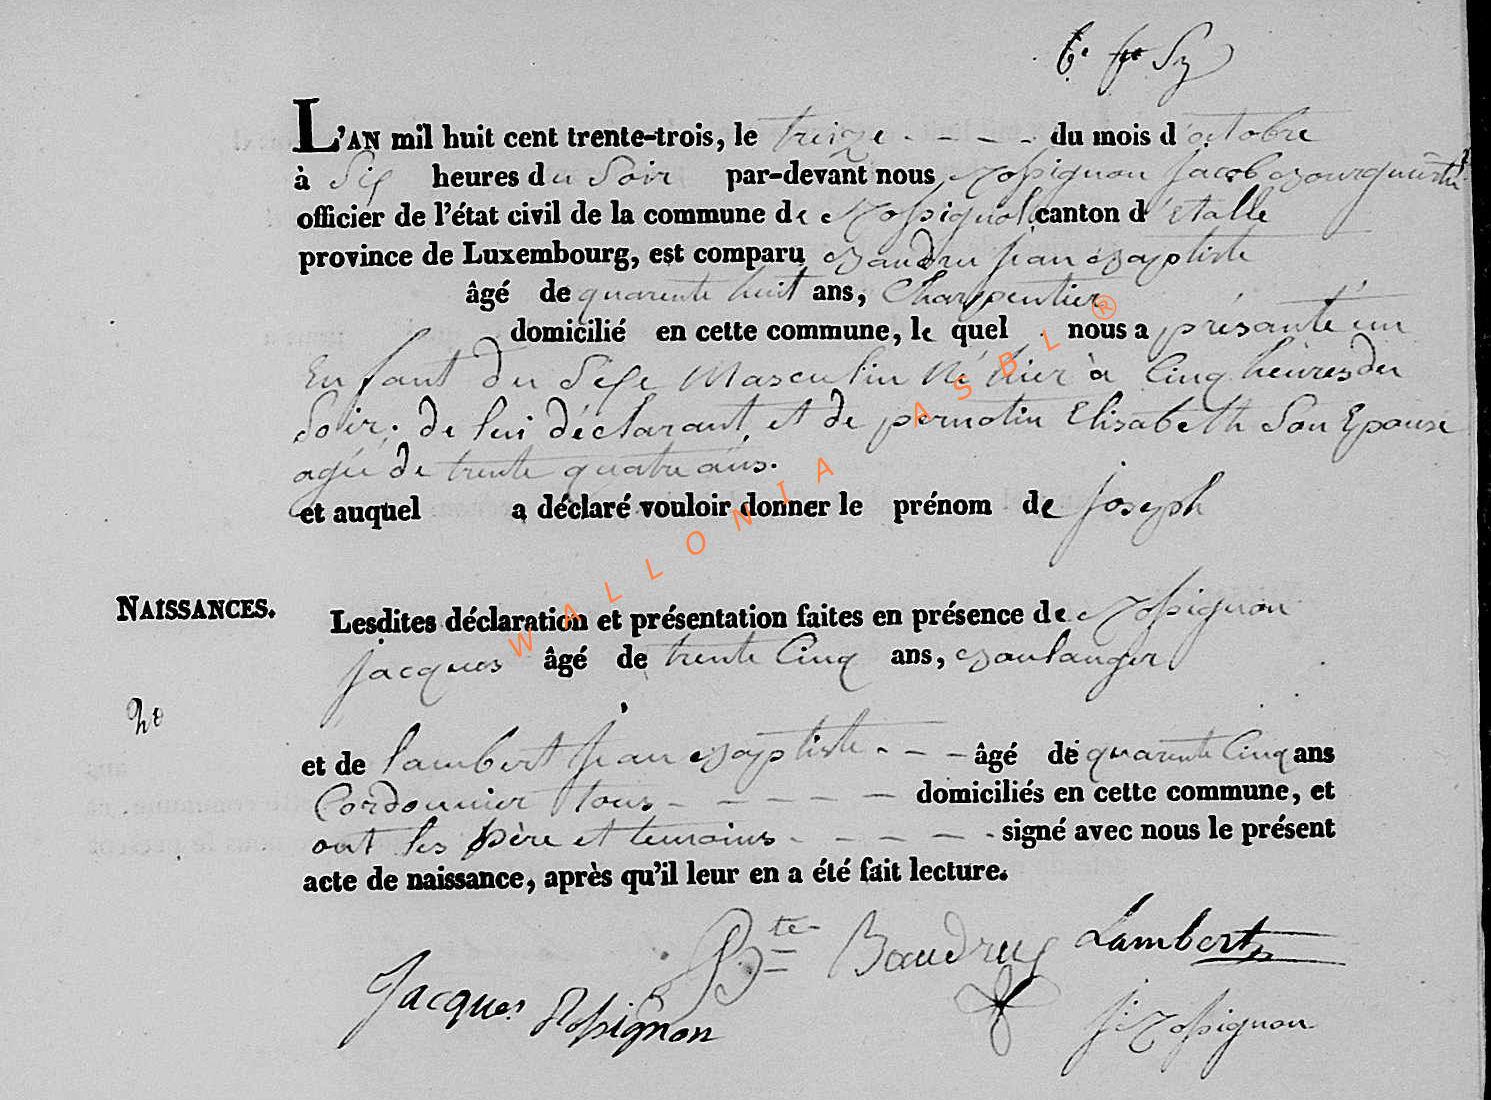 L'AN mil huit cent trente-trois, le treize - - - - du mois d'octobre
à Six heures du Soir par-devant nous Rossignon Jacob Bourguemestre
officier de l'état civil de la commune de Rossignol canton d'Etalle
province de Luxembourg, est comparu Baudru jean Baptiste
âgé de quarente huit ans, Charpentier
domicilié en cette commune, le quel nous a présanté un
Enfant du Sexe Masculin Né hier à Cinq heures du
Soir, de lui déclarant et de pernotin Elisabeth Son Epouse
agée de trente quatre ans.
et auquel a déclaré vouloir donner le prénom de joseph
NAISSANCES.
Lesdites déclaration et présentation faites en présence de Rossignon
jacques âgé de trente Cinq ans, Boulanger
et de lambert jean Baptiste - - - âgé de quarente Cinq ans
Cordonnier tous - - - - - domiciliés en cette commune, et
ont les père et temoins - - - - - signé avec nous le présent
acte de naissance, après qu'il leur en a été fait lecture.
Bte Baudrux Lambert
Jacques Rossignon
J. Rossignon
WALLONIA ASBL ®